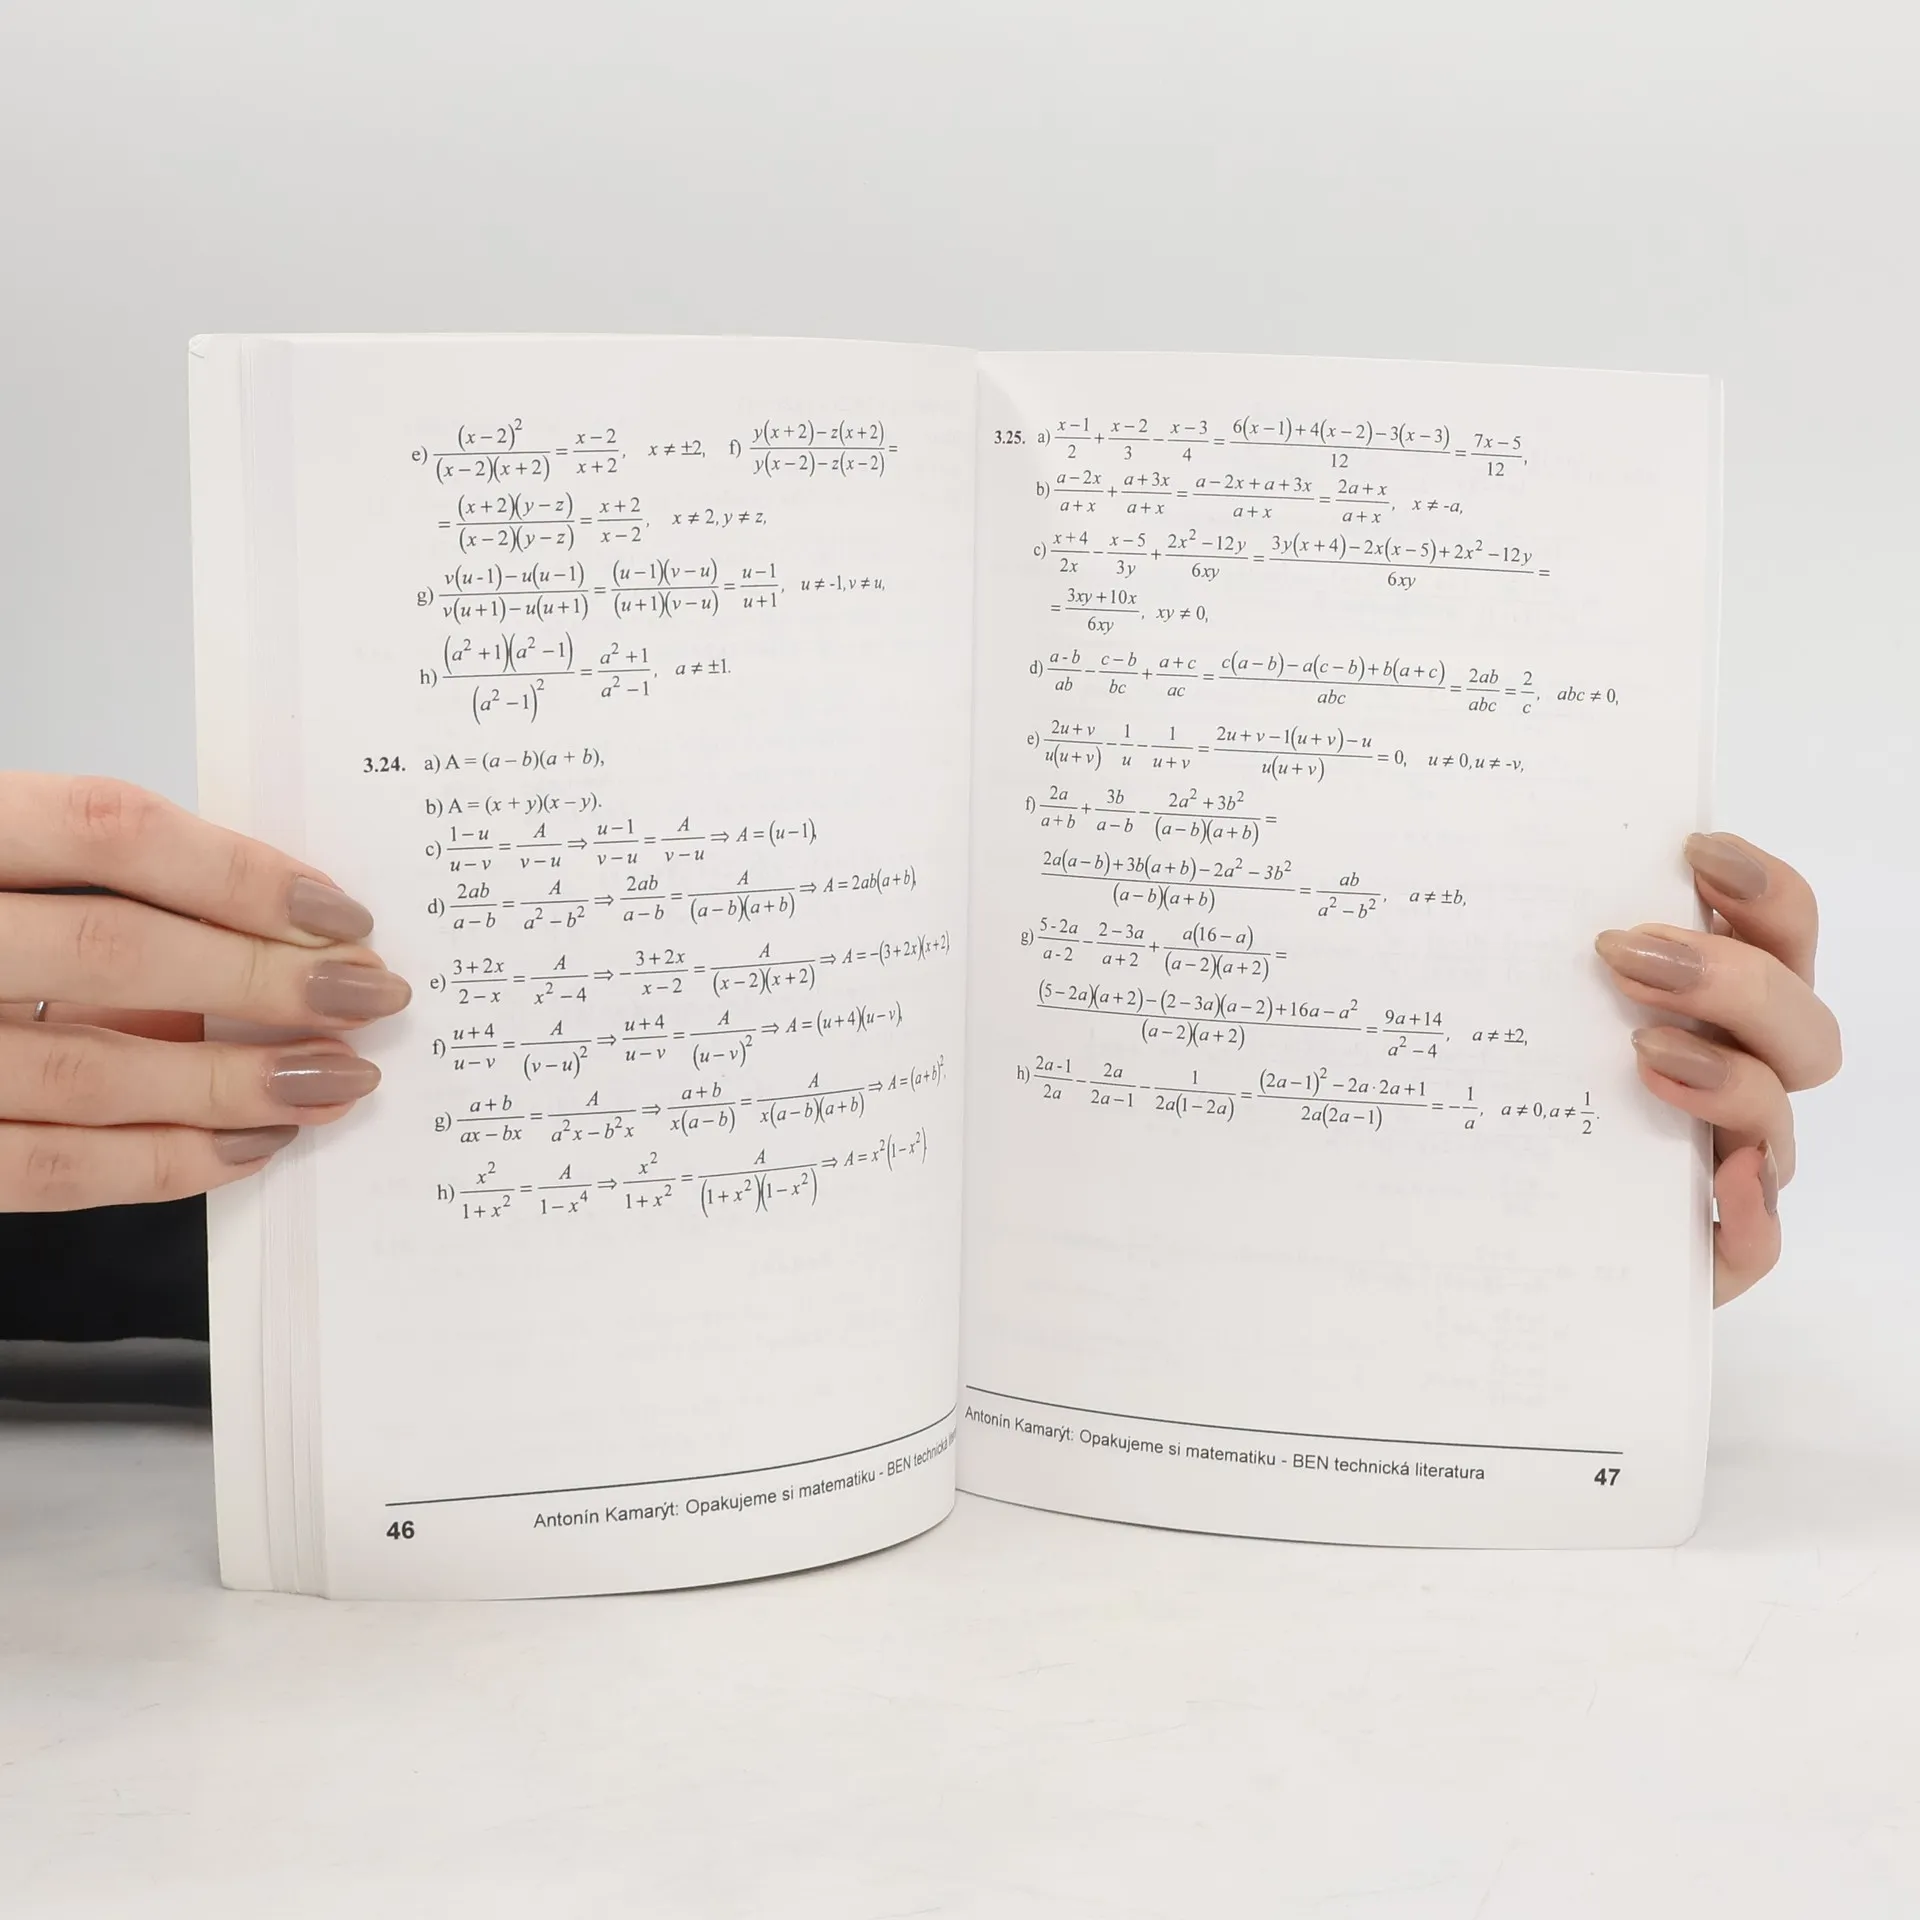 e) (x−2)²/((x−2)(x+2)) = (x−2)/(x+2), x ≠ ±2, f) (y(x+2)−z(x+2))/(y(x−2)−z(x−2)) =
= ((x+2)(y−z))/((x−2)(y−z)) = (x+2)/(x−2), x ≠ 2, y ≠ z,
g) (v(u-1)−u(u−1))/(v(u+1)−u(u+1)) = ((u−1)(v−u))/((u+1)(v−u)) = (u−1)/(u+1), u ≠ -1, v ≠ u,
h) ((a²+1)(a²−1))/(a²−1)² = (a²+1)/(a²−1), a ≠ ±1.
3.24. a) A = (a – b)(a + b),
b) A = (x + y)(x – y).
c) (1−u)/(u−v) = A/(v−u) ⇒ (u−1)/(v−u) = A/(v−u) ⇒ A = (u−1),
d) 2ab/(a−b) = A/(a²−b²) ⇒ 2ab/(a−b) = A/((a−b)(a+b)) ⇒ A = 2ab(a+b),
e) (3+2x)/(2−x) = A/(x²−4) ⇒ −(3+2x)/(x−2) = A/((x−2)(x+2)) ⇒ A = −(3+2x)(x+2),
f) (u+4)/(u−v) = A/(v−u)² ⇒ (u+4)/(u−v) = A/(u−v)² ⇒ A = (u+4)(u−v),
g) (a+b)/(ax−bx) = A/(a²x−b²x) ⇒ (a+b)/(x(a−b)) = A/(x(a−b)(a+b)) ⇒ A = (a+b)²,
h) x²/(1+x²) = A/(1−x⁴) ⇒ x²/(1+x²) = A/((1+x²)(1−x²)) ⇒ A = x²(1−x²)
46 Antonín Kamarýt: Opakujeme si matematiku - BEN technická
3.25. a) (x−1)/2 + (x−2)/3 − (x−3)/4 = (6(x−1)+4(x−2)−3(x−3))/12 = (7x−5)/12,
b) (a−2x)/(a+x) + (a+3x)/(a+x) = (a−2x+a+3x)/(a+x) = (2a+x)/(a+x), x ≠ -a,
c) (x+4)/2x − (x−5)/3y + (2x²−12y)/6xy = (3y(x+4)−2x(x−5)+2x²−12y)/6xy =
= (3xy+10x)/6xy, xy ≠ 0,
d) (a-b)/ab − (c−b)/bc + (a+c)/ac = (c(a−b)−a(c−b)+b(a+c))/abc = 2ab/abc = 2/c, abc ≠ 0,
e) (2u+v)/(u(u+v)) − 1/u − 1/(u+v) = (2u+v−1(u+v)−u)/(u(u+v)) = 0, u ≠ 0, u ≠ -v,
f) 2a/(a+b) + 3b/(a−b) − (2a²+3b²)/((a−b)(a+b)) =
(2a(a−b)+3b(a+b)−2a²−3b²)/((a−b)(a+b)) = ab/(a²−b²), a ≠ ±b,
g) (5-2a)/(a-2) − (2−3a)/(a+2) + a(16−a)/((a−2)(a+2)) =
((5−2a)(a+2)−(2−3a)(a−2)+16a−a²)/((a−2)(a+2)) = (9a+14)/(a²−4), a ≠ ±2,
h) (2a-1)/2a − 2a/(2a−1) − 1/(2a(1−2a)) = ((2a−1)²−2a·2a+1)/(2a(2a−1)) = −1/a, a ≠ 0, a ≠ 1/2.
Antonín Kamarýt: Opakujeme si matematiku - BEN technická literatura 47